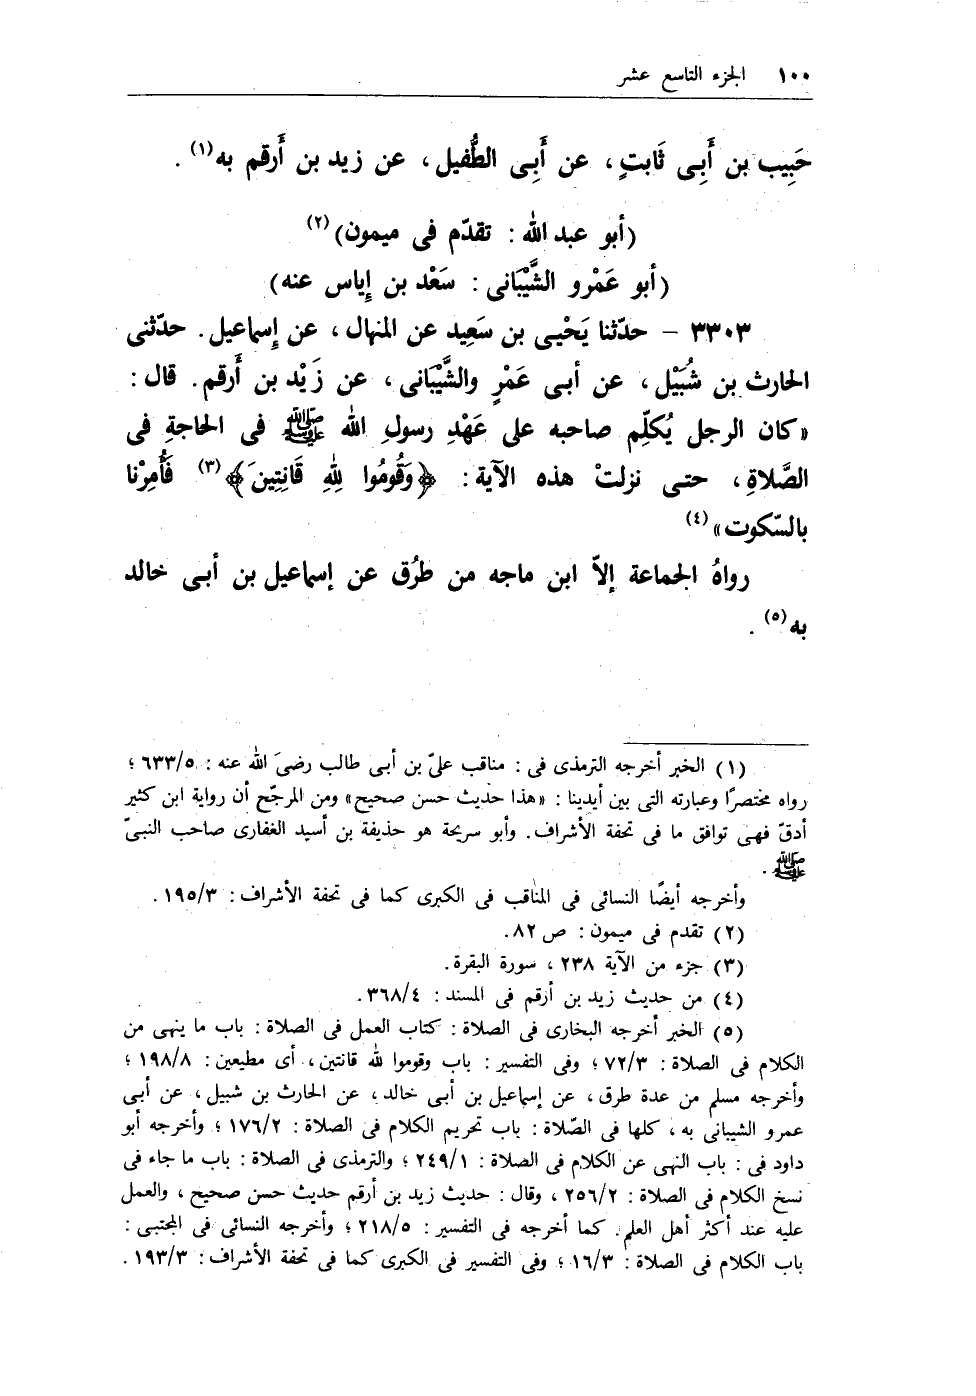 ١٠٠ الجزء التاسع عشر
حَبِيب بن أَبِى ثَابتٍ، عن أَبِى الطُّفيل، عن زيد بن أَرقم به(١).
(أبو عبد الله: تقدّم فى ميمون)(٢)
(أبو عَمْرو الشَّيْبَانى: سَعْد بن إِياس عنه)
٣٣٠٣ – حدّثنا يَحْيى بن سَعِيد عن المنهال، عن إِسماعيل. حدّثنى
الحارث بن شُبَيْل، عن أبى عَمْرٍ والشَّيْبَانى، عن زَيْد بن أَرقم. قال:
«كان الرجل يُكلِّم صاحبه على عَهْدِ رسولِ الله ﷺ فى الحاجةِ فى
الصَّلاةِ، حتى نزلتْ هذه الآية: ﴿وَقُومُوا لِلهِ قَانِتِينَ﴾(٣) فَأُمِرْنا
بالسّكوت»(٤)
رواهُ الجماعة إلاّ ابن ماجه من طرُق عن إسماعيل بن أبى خالد
به(٥).
(١) الخبر أخرجه الترمذى فى: مناقب علىّ بن أبى طالب رضىَ الله عنه: ٦٣٣/٥؛
رواه مختصرًا وعبارته التى بين أيدينا: «هذا حديث حسن صحيح» ومن المرجّح أن رواية ابن كثير
أدقّ فهى توافق ما فى تحفة الأشراف. وأبو سريحة هو حذيفة بن أسيد الغفارى صاحب النبىّ
ﷺ.
وأخرجه أيضًا النسائى فى المناقب فى الكبرى كما فى تحفة الأشراف: ١٩٥/٣.
(٢) تقدم فى ميمون: ص ٨٢.
(٣) جزء من الآية ٢٣٨، سورة البقرة.
(٤) من حديث زيد بن أرقم فى المسند: ٣٦٨/٤.
(٥) الخبر أخرجه البخارى فى الصلاة: كتاب العمل فى الصلاة: باب ما ينهى من
الكلام فى الصلاة: ٧٢/٣؛ وفى التفسير: باب وقوموا لله قانتين، أى مطيعين: ١٩٨/٨؛
وأخرجه مسلم من عدة طرق، عن إسماعيل بن أبى خالد، عن الحارث بن شبيل، عن أبى
عمرو الشيبانى به، كلها فى الصّلاة: باب تحريم الكلام فى الصلاة: ١٧٦/٢؛ وأخرجه أبو
داود فى: باب النهى عن الكلام فى الصلاة: ٢٤٩/١؛ والترمذى فى الصلاة: باب ما جاء فى
نسخ الكلام فى الصلاة: ٢٥٦/٢، وقال: حديث زيد بن أرقم حديث حسن صحيح، والعمل
عليه عند أكثر أهل العلم. كما أخرجه فى التفسير: ٢١٨/٥؛ وأخرجه النسائى فى المجتبى:
باب الكلام فى الصلاة: ١٦/٣؛ وفى التفسير فى الكبرى كما فى تحفة الأشراف: ١٩٣/٣.